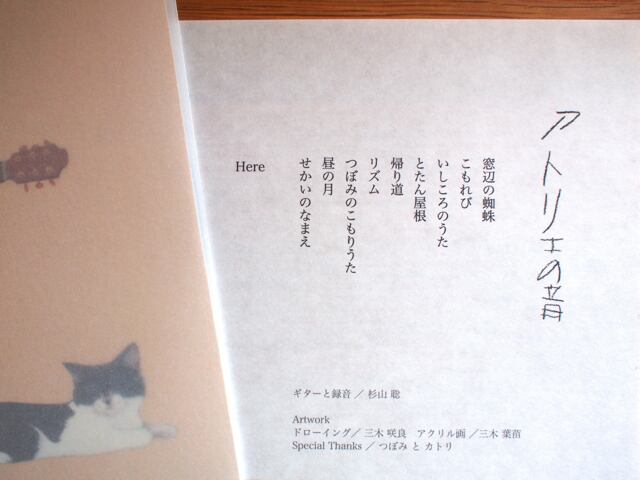 アトリエの音
窓辺の蜘蛛
こもれび
いしころのうた
とたん屋根
帰り道
リズム
つぼみのこもりうた
昼の月
せかいのなまえ
Here
ギターと録音 ／ 杉山 聡
Artwork
ドローイング／ 三木 咲良　アクリル画 ／三木 葉苗
Special Thanks ／ つぼみ と カトリ